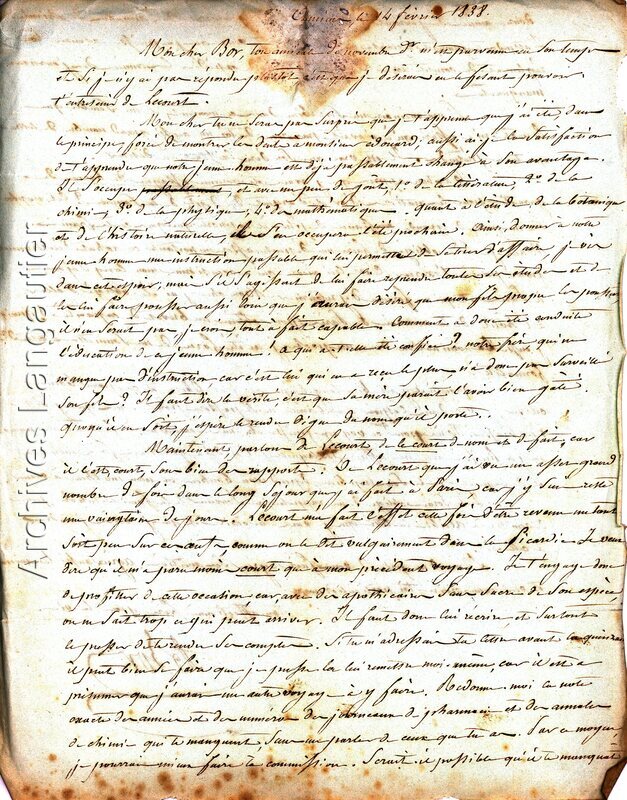 le 14 février 1838.
Mon cher Bor, ton amicale de novembre dr m'est parvenue en son temps
et si je n'y ai pas répondu plustôt c'est que je désirais en le fesant pouvoir
t'entretenir de Lecourt.
Mon cher tu ne seras pas surpris que je t'apprenne que j'ai été, dans
le principe, forcé de montrer les dents à monsieur édouard, aussi ai je la satisfaction
de t'apprendre que notre jeune homme est déjà passablement changé à son avantage.
Il s'occupe, et avec un peu de goût, 1° de la littérature, 2° de la
chimie, 3° de la physique, 4° de mathématique. quant à l'étude de la botanique
et de l'histoire naturelle, il s'en occupera l'été prochain. Ainsi, donner à notre
jeune homme une instruction passable qui lui permette de se tirer d'affaire je vis
dans cet espoir, mais s'il s'agissait de lui faire reprendre toutes ses études et de
les lui faire pousser aussi loin que j'aurais désiré que mon fils pusse les pousser
il n'en serait pas je crois tout à fait capable. Comment a donc été conduite
l'éducation de ce jeune homme? à qui a-t-elle été confiée? notre frère, qui ne
manque pas d'instruction car c'est lui qui en a reçu le plus n'a donc pas surveillé
son fils? Il faut dire la vérité c'est que sa mère parait l'avoir bien gâté.
quoiqu'il en soit, j'espère le rendre digne du nom qu'il porte.
Maintenant parlons de Lecourt, de le court de nom et de fait, car
il est court, sous bien des rapports. Ce Lecourt que j'ai vu un assez grand
nombre de fois dans le long séjour que j'ai fait à Paris, car j'y suis resté
une vaingtaine de jours. Lecourt m'a fait l'effet cette fois d'être revenu un tant
soit peu sur ce comme on le dit vulgairement dans la Picardie. Je veux
dire qu'il m'a paru moins court que à mon précédent voyage. Je t'engage donc
de profitter de cette occasion car, avec des apothicaires sans sucre de son espèce
on ne sait trop ce qui peut arriver. Il faut donc lui écrire, et surtout
le presser de te rendre ses comptes. Si tu m'adressais ta lettre avant la quinzaine
il peut bien se faire que je puisse la lui remettre moi-même, car il est à
présumer que j'aurai un autre voyage à y faire. Redonne moi la note
exacte des années et des numéros des journeaux de pharmacie et des annales
de chimie qui te manquent, sans me parler de ceux que tu as. Par ce moyen
je pourrai mieux faire ta commission. Serait-il possible qu'il te manquât
Archives Langautier